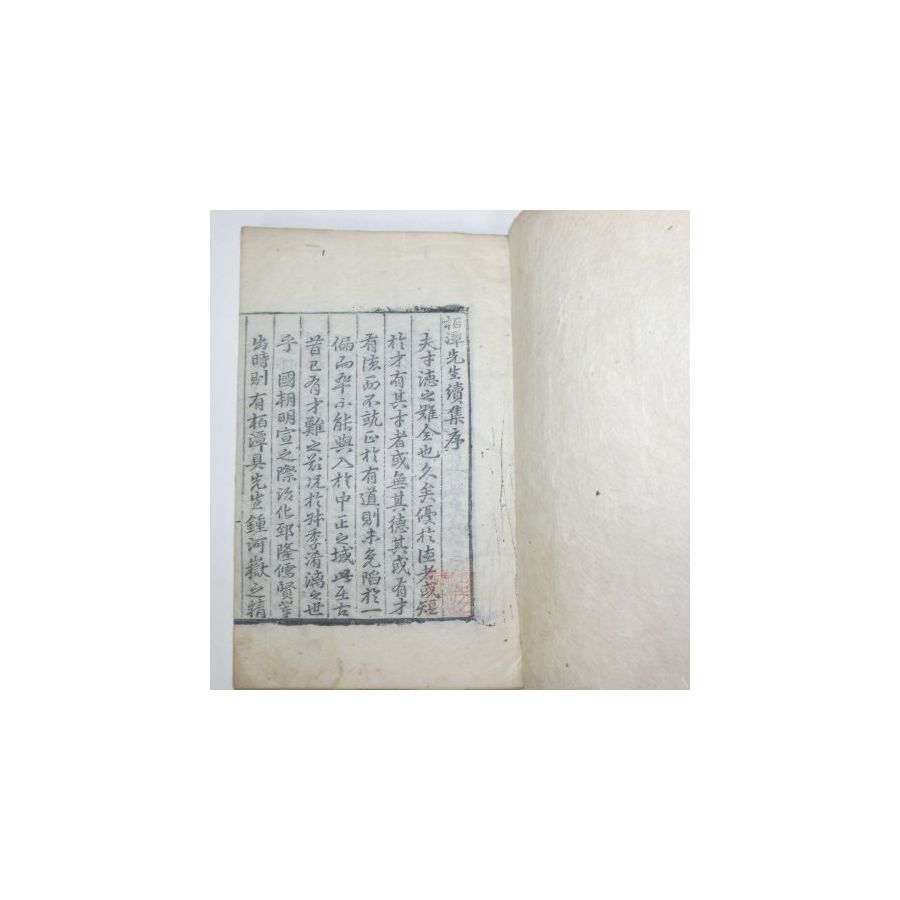 栢潭先生續集序
夫才德之難全也久矣優於德者或短
於才有其才者或無其德其或有才
有德而不就正於有道則未免陷於一
偏而卒不能與入於中正之域此在古
昔已有才難之歎況於叔季淆漓之世
乎 國朝明宣之際治化郅隆儒賢
當時則有栢潭具先生鍾河嶽之精